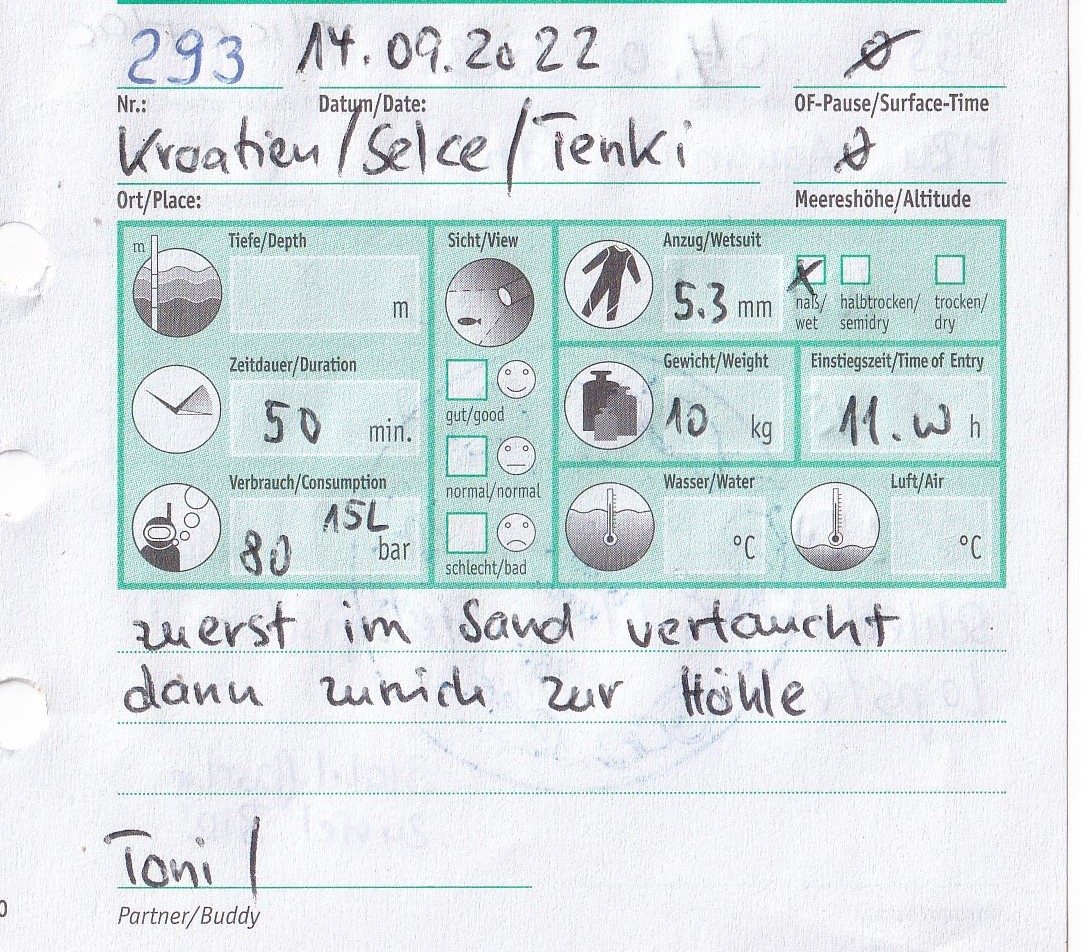 293 14.09.2022 ∅
Nr.: Datum/Date: OF-Pause/Surface-Time
Kroatien/Selce/Tenki ∅
Ort/Place: Meereshöhe/Altitude
m Tiefe/Depth Sicht/View Anzug/Wetsuit
m 5.3 mm X naß/ halbtrocken/ trocken/
wet semidry dry
Zeitdauer/Duration Gewicht/Weight Einstiegszeit/Time of Entry
50 min. gut/good 10 kg 11. h
Verbrauch/Consumption normal/normal Wasser/Water Luft/Air
15L
80 bar °C °C
schlecht/bad
zuerst im Sand vertaucht
dann zurück zur Höhle
Toni /
Partner/Buddy
0